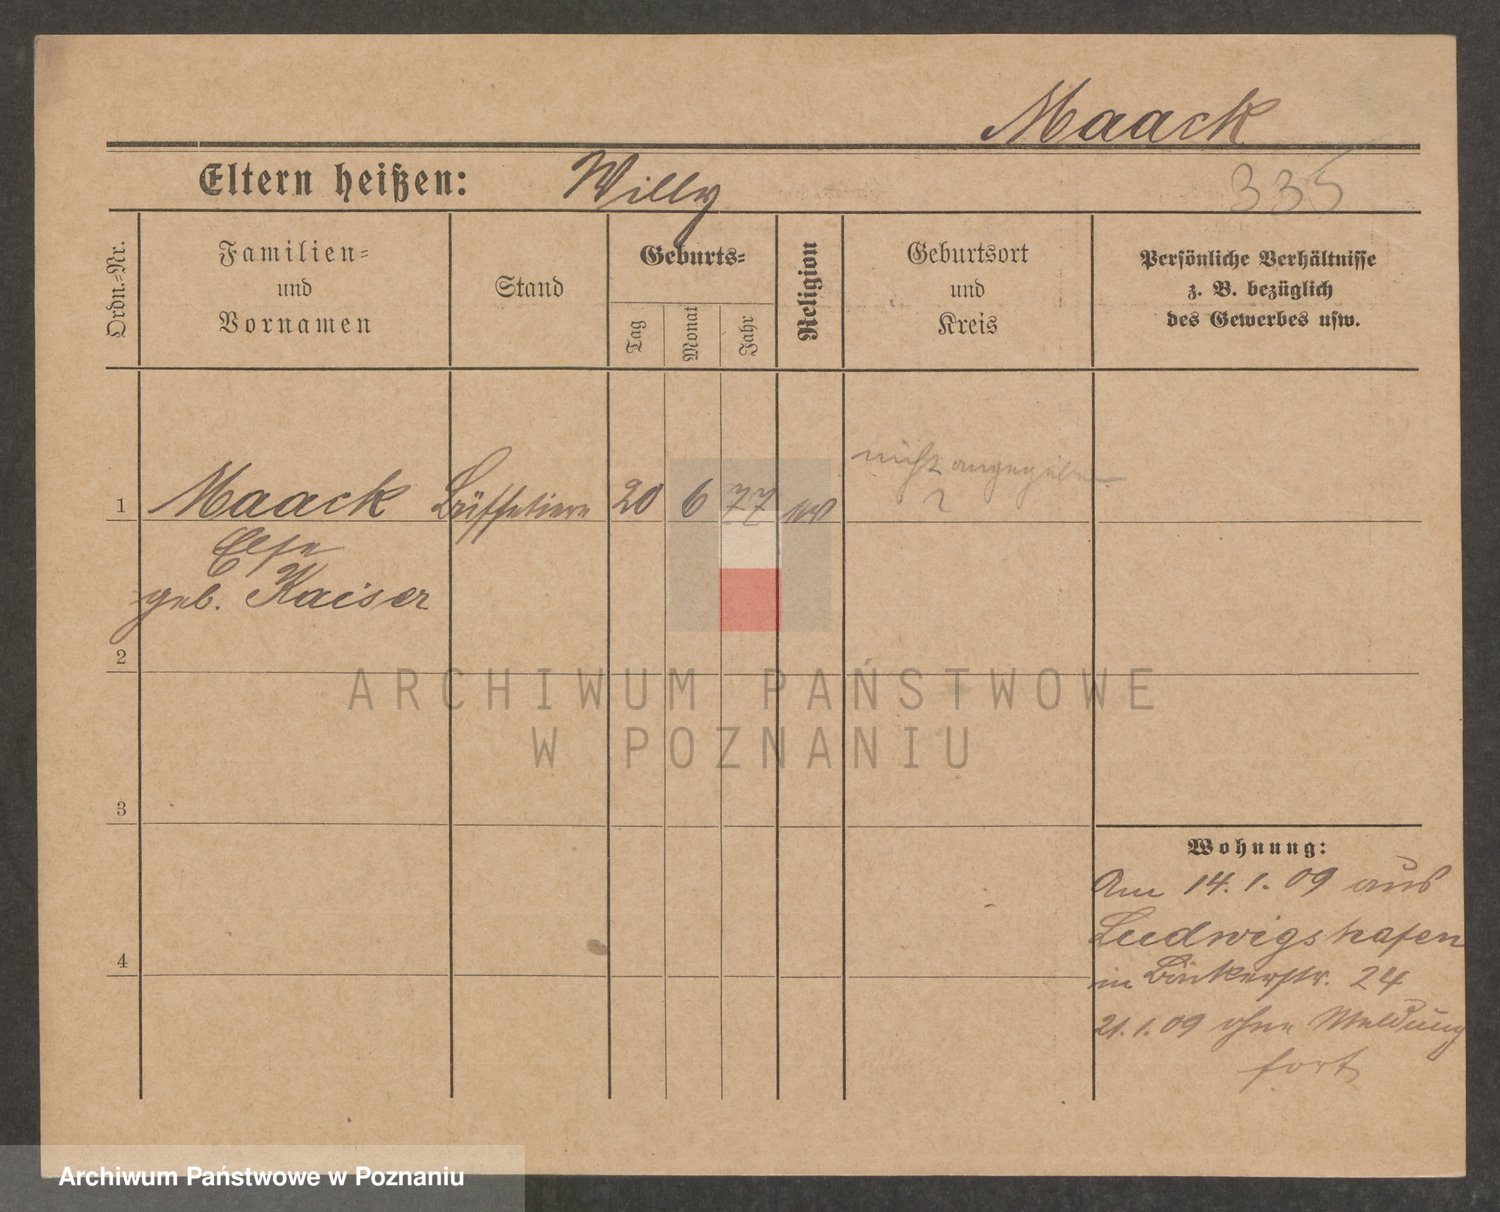 Maack
Eltern heißen: Willy
335
Ordn.-Nr.
Familien-
und
Vornamen
Stand
Geburts-
Tag
Monat
Jahr
Religion
Geburtsort
und
Kreis
Persönliche Verhältnisse
z. B. bezüglich
des Gewerbes usw.
nicht angegeben
?
1 Maack Büffetiere 20 6 77
Else
geb. Kaiser
2
3
4
Wohnung:
Am 14. 1. 09 aus
Ludwigshafen
in Bäckerstr. 24
21. 1. 09 ohne Meldung
fort
ARCHIWUM PAŃSTWOWE
W POZNANIU
Archiwum Państwowe w Poznaniu